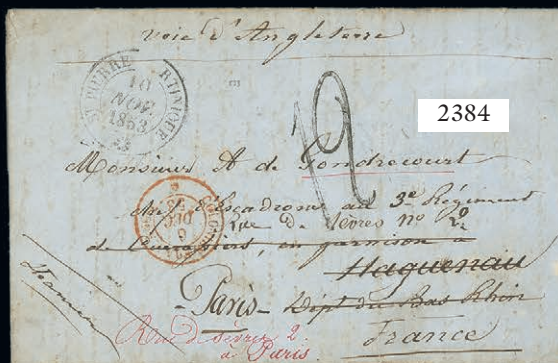 voie d'Angleterre
ST PIERRE MARTINIQUE
10
NOV.
1853
12
2384
Monsieur A de Gondrecourt
chef d'Escadrons au 3e Régiment
rue de Sèvres no 2
de Cuirassiers, en garnison à
Haguenau
Paris Dépt du Bas Rhin
France
Rue de Sèvres 2
à Paris